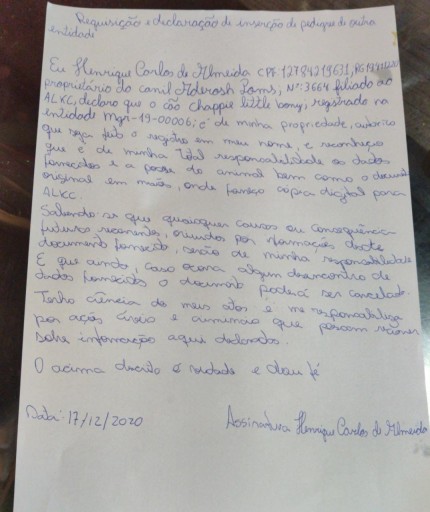 Requisição e declaração de inserção de pedigree de outra
entidade
Eu Henrique Carlos de Almeida CPF 12784219631, RG
proprietário do canil Aderosh Lams, Nº: 3664 filiado ao
ALKC, declaro que o cão Chappie little bony, registrado na
entidade mgr-19-00006; é de minha propriedade, autorizo
que seja feito o registro em meu nome, e reconheço
que é de minha total responsabilidade os dados
fornecidos e a posse do animal bem como o documento
original em mãos, onde forneço cópia digital para
ALKC.
Sabendo-se que quaisquer causas ou consequência
futuras recorrentes, oriundos por informações deste
documento fornecido, serão de minha responsabilidade
E que ainda, caso ocorra algum desencontro de
dados fornecidos o documento poderá ser cancelado.
Tenho ciência do meus atos e me responsabilizo
por ações cíveis e que possam
sobre informação aqui declarados.
O acima descrito é verdade e dou fé
Data: 17/12/2020
Assinatura Henrique Carlos de Almeida